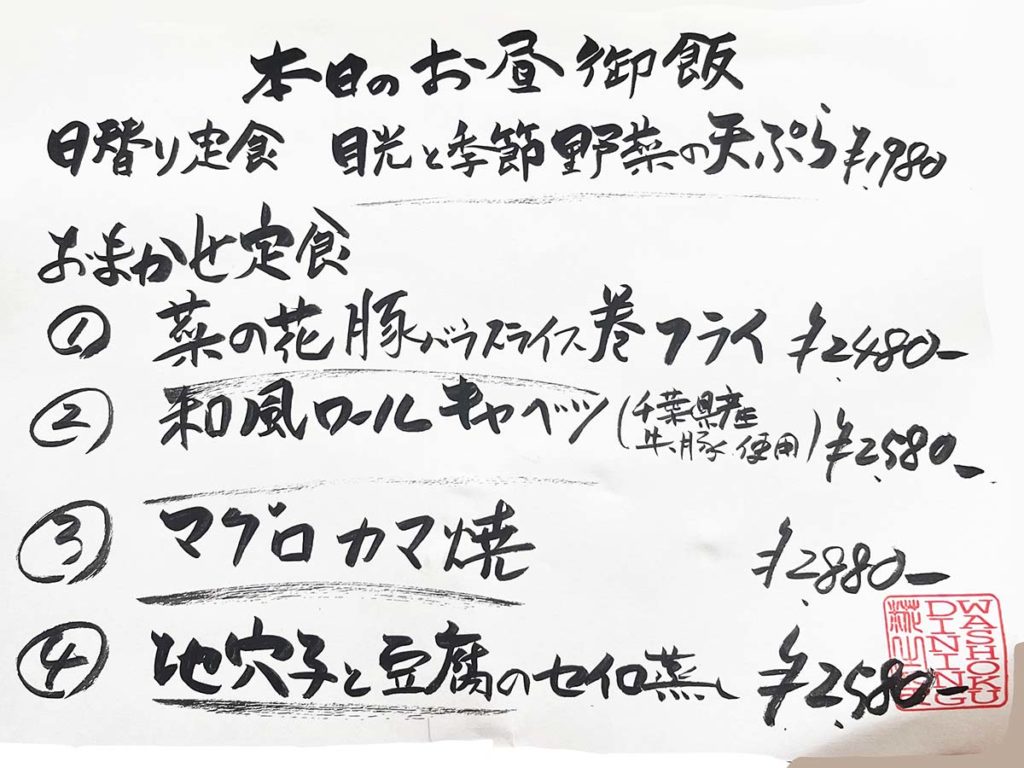 本日のお昼御飯
日替り定食 目光と季節野菜の天ぷら ¥1,980
おまかせ定食
① 菜の花豚バラスライス巻フライ ¥2,480-
② 和風ロールキャベツ(千葉県産牛、豚使用) ¥2,580-
③ マグロカマ焼 ¥2,880-
④ 地穴子と豆腐のセイロ蒸し ¥2,580-
WASHOKU
DINING